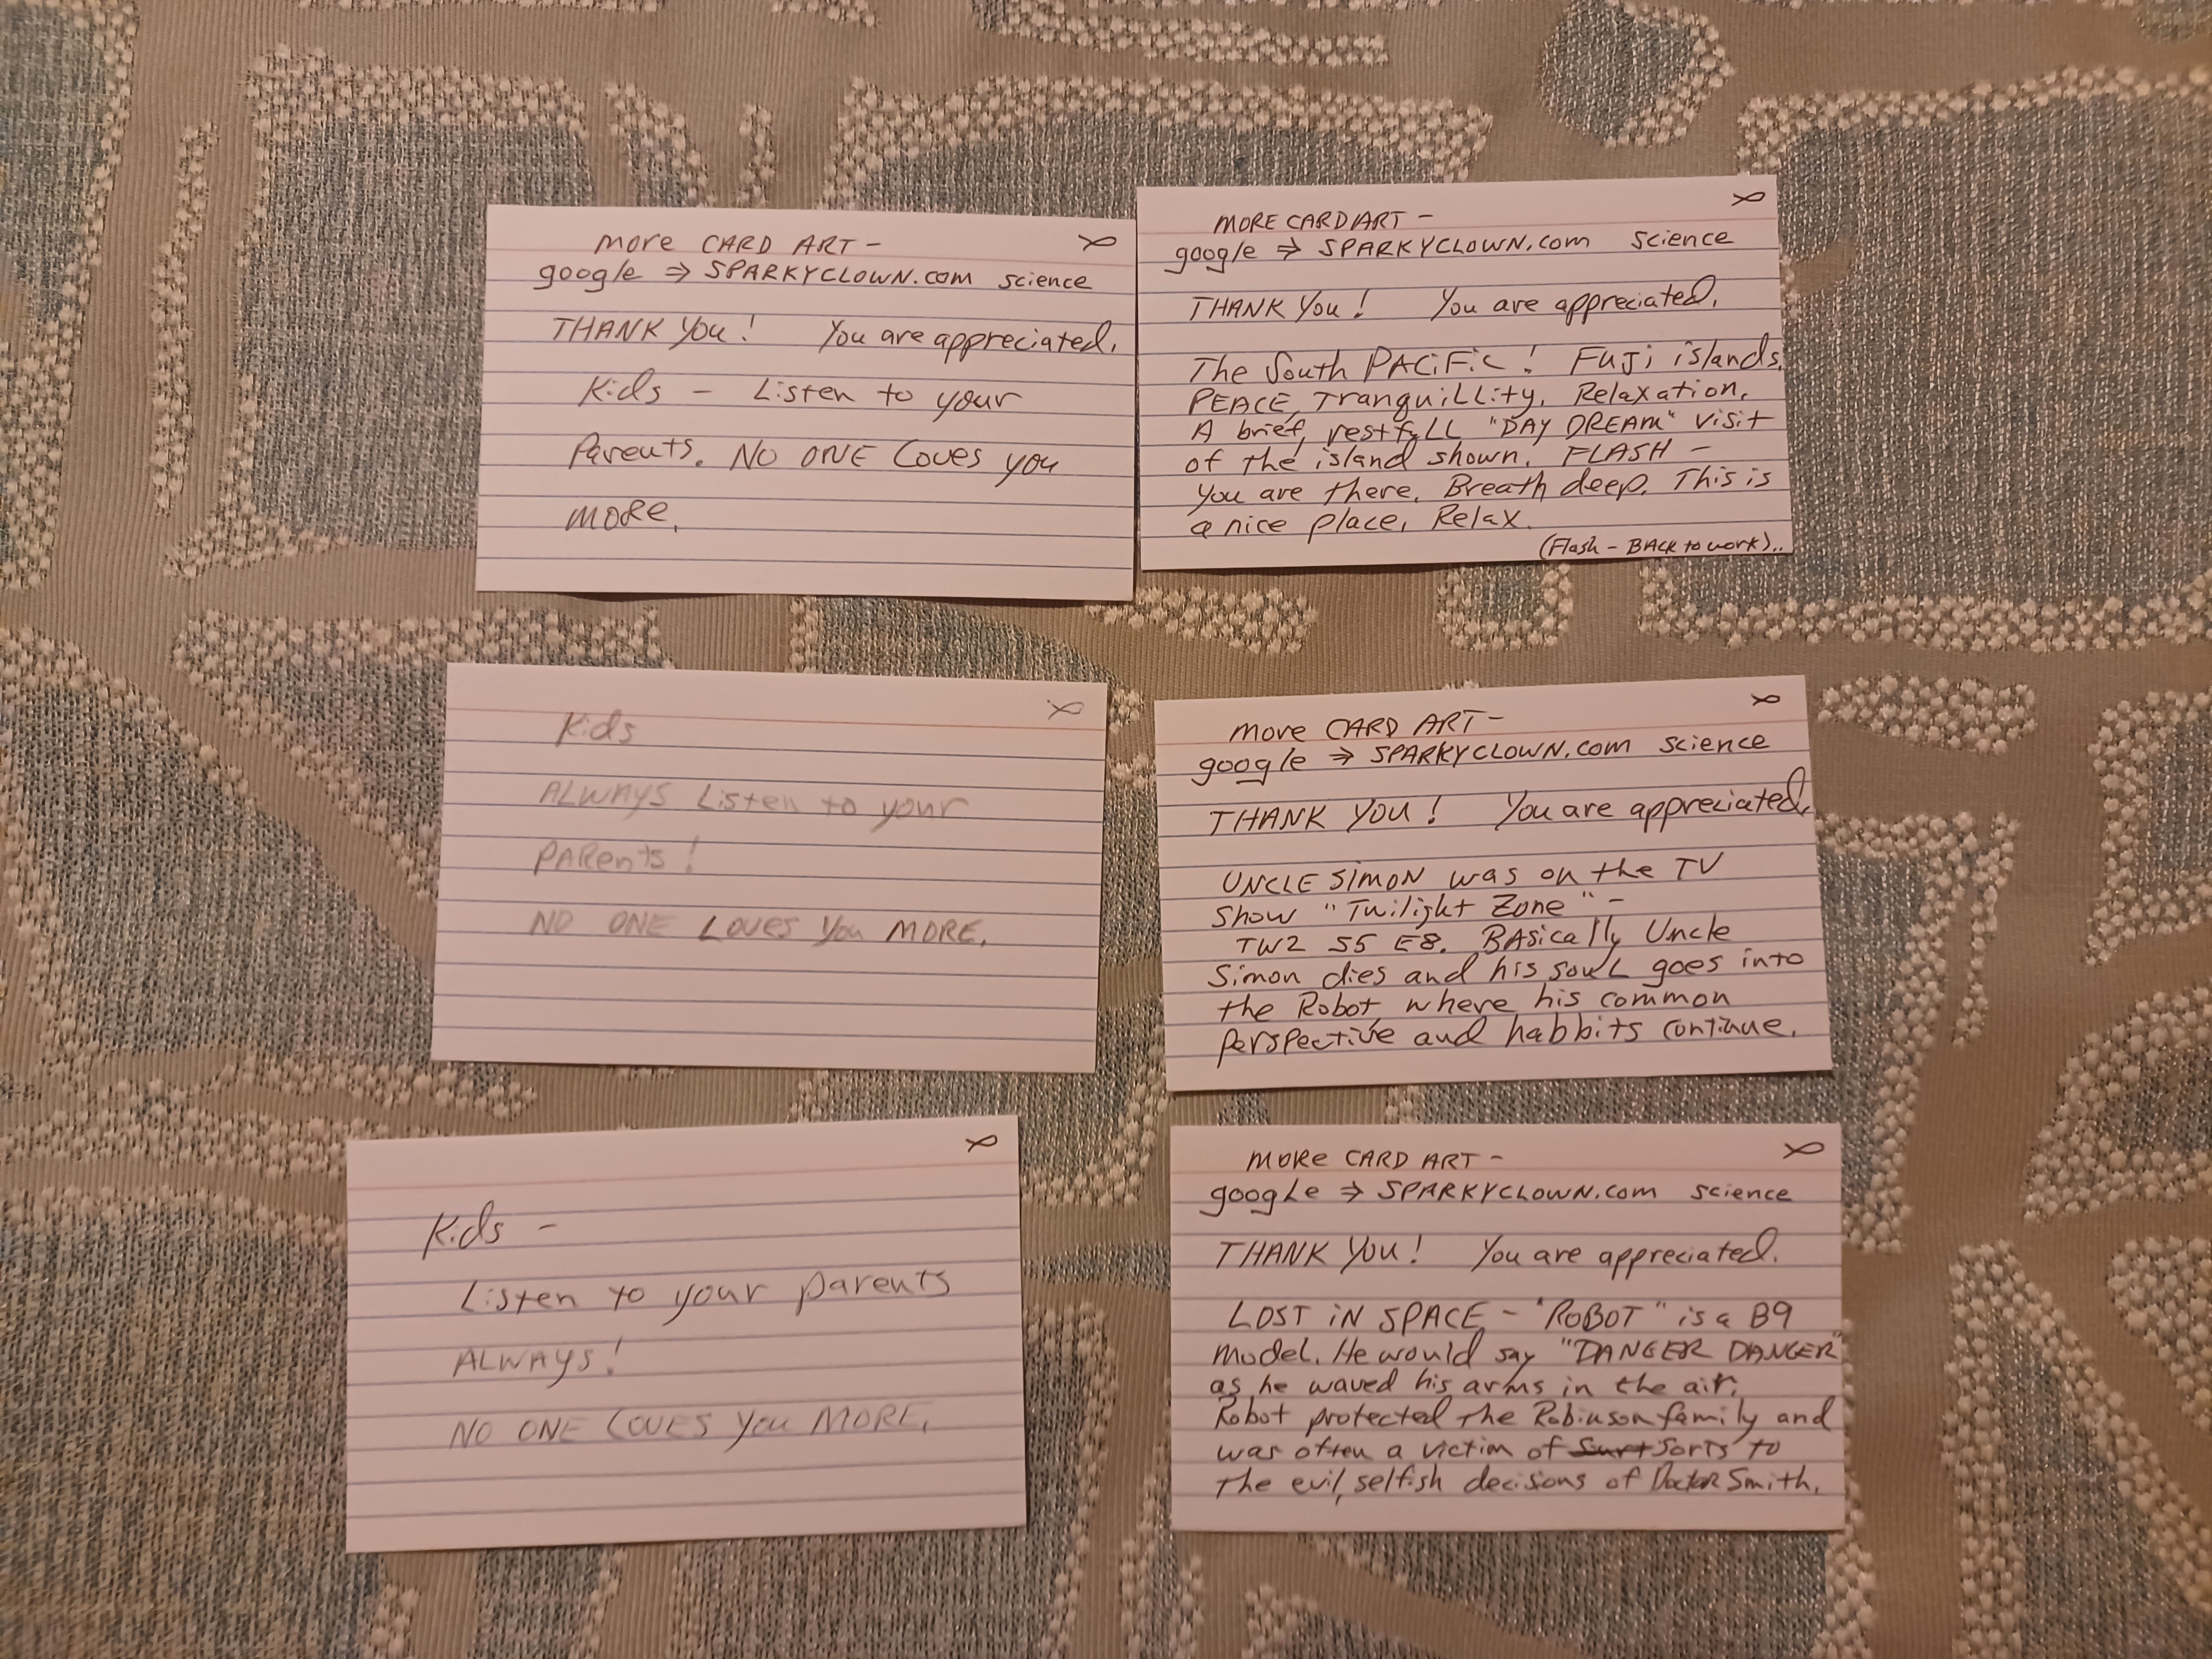 more CARD ART -
google ⇒ SPARKYCLOWN.com science
THANK YOU! You are appreciated.
Kids - Listen to your
Parents. NO ONE Loves you
MORE.
MORE CARD ART -
google ⇒ SPARKYCLOWN.com science
THANK YOU! You are appreciated.
The South PACiFic! FUJi islands.
PEACE, Tranquillity, Relaxation.
A brief, restfull "DAY DREAM" visit
of the island shown. FLASH -
You are there. Breath deep. This is
a nice place, Relax.
(Flash - BACK to work)..
Kids
ALWAYS Listen to your
PARents!
NO ONE LOVES You MORE.
more CARD ART -
google ⇒ SPARKYCLOWN.com science
THANK YOU! You are appreciated.
UNCLE SIMON was on the TV
Show "Twilight Zone" -
TWZ S5 E8. BAsically Uncle
Simon dies and his souL goes into
the Robot, where his common
perspective and habbits continue.
Kids -
Listen to your parents
ALWAYS!
NO ONE LOVES You MORE.
MORE CARD ART -
google ⇒ SPARKYCLOWN.com science
THANK YOU! You are appreciated.
LOST iN SPACE - "ROBOT" is a B9
model. He would say "DANGER DANGER"
as he waved his arms in the air.
Robot protected the Robinson family and
was often a victim of Surt Sorts to
the evil, selfish decisions of Doctor Smith.